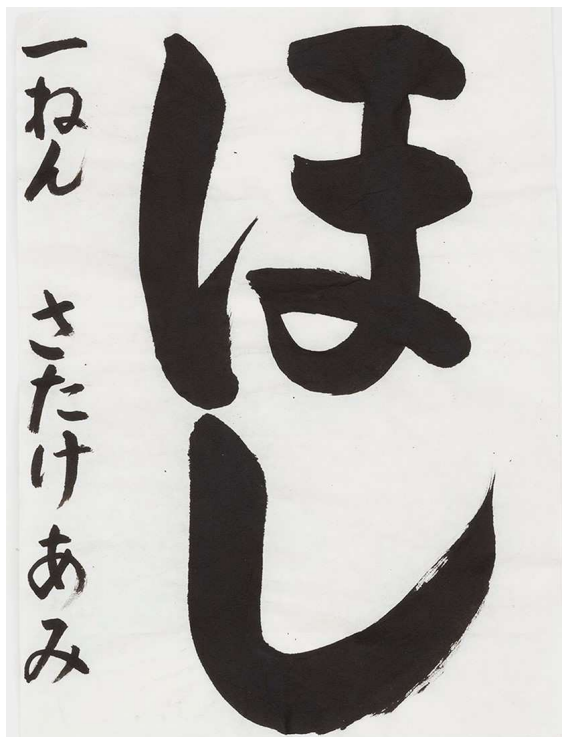 ほし
一ねん さたけあみ